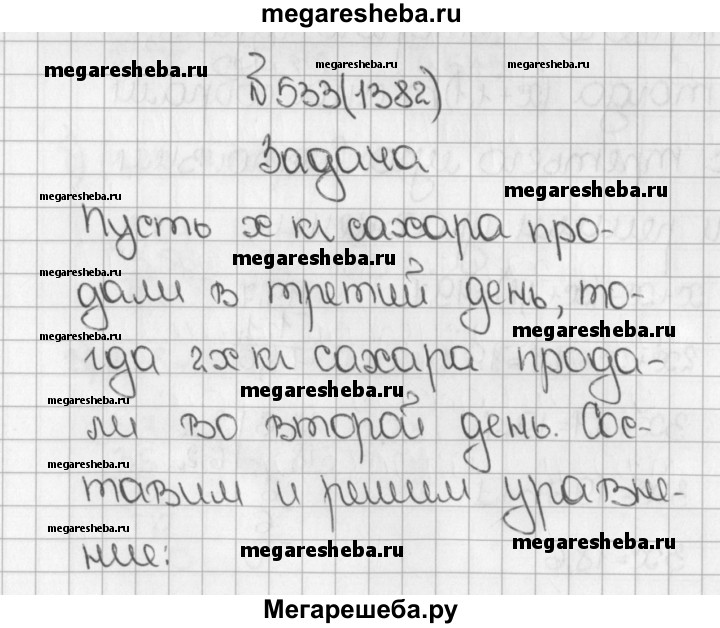 megaresheba.ru
megaresheba.ru
megaresheba.ru
№533(1382)
Задача
megaresheba.ru
megaresheba.ru
Пусть х кг сахара про-
megaresheba.ru
megaresheba.ru
дали в третий день, то-
megaresheba.ru
гда 2х кг сахара прода-
megaresheba.ru
megaresheba.ru
ли во второй день. Сос-
megaresheba.ru
тавим и решим уравне-
megaresheba.ru
megaresheba.ru
megaresheba.ru
ние:
Мегарешеба.ру